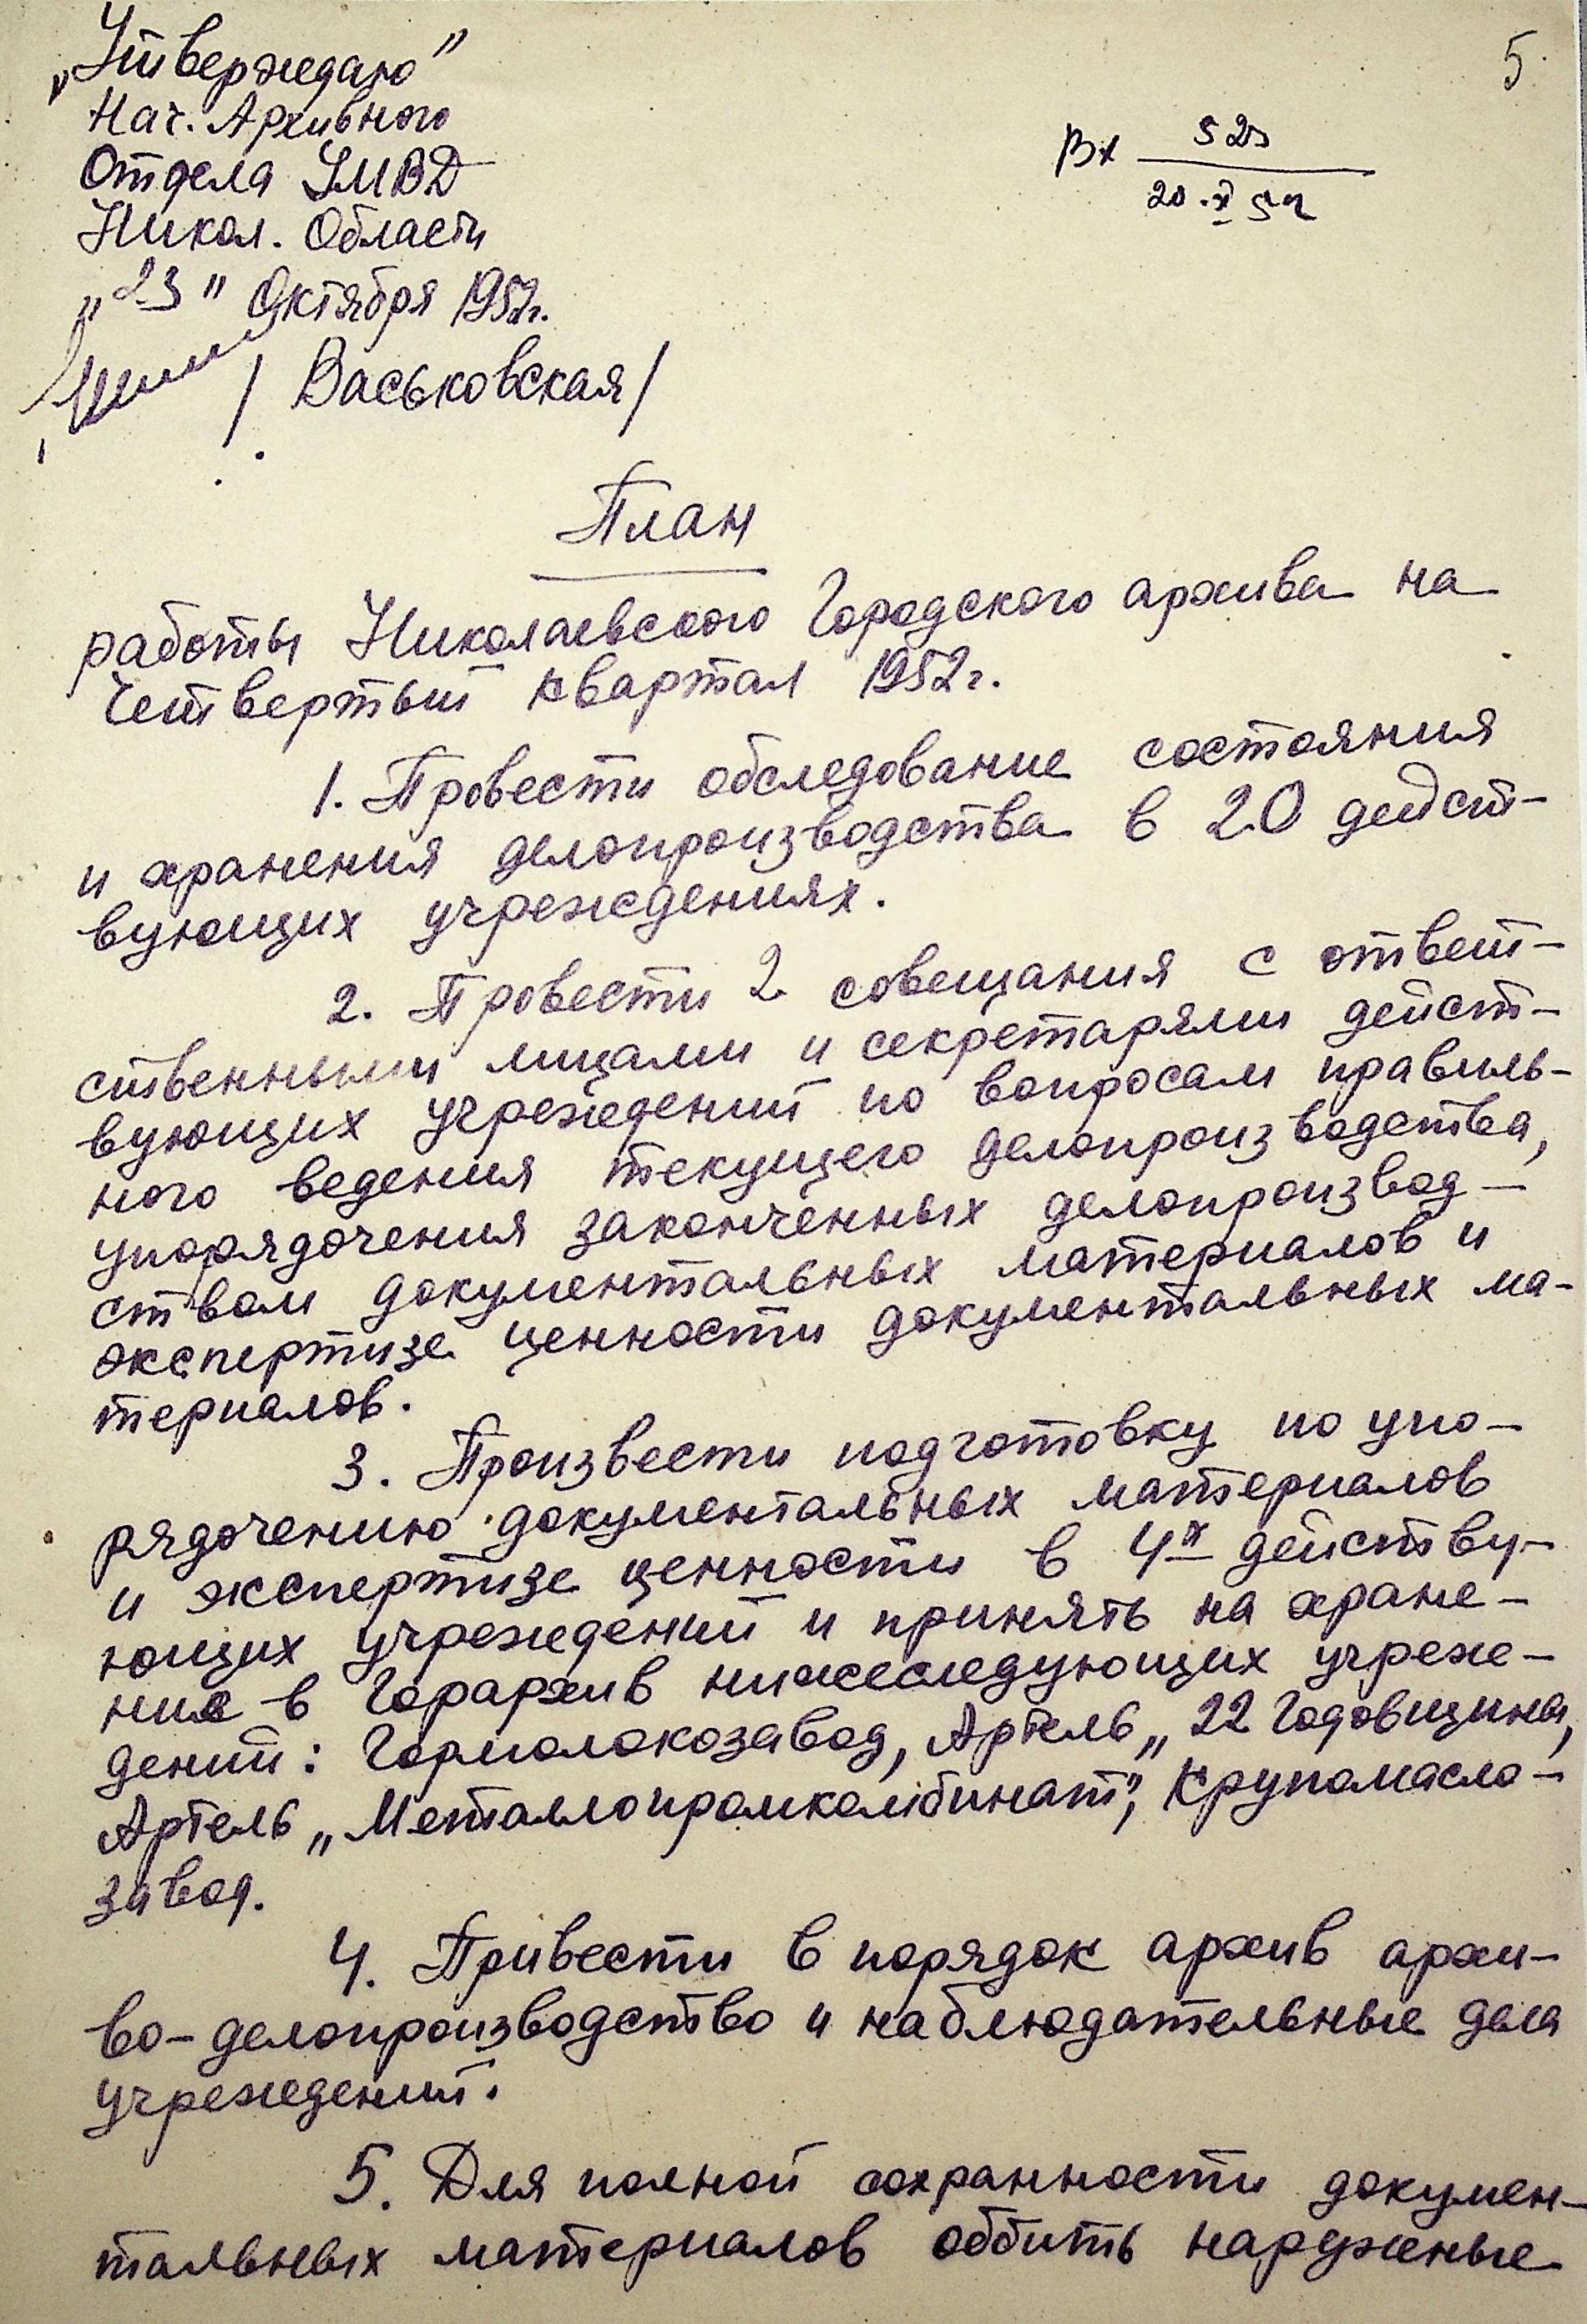 5.
„Утверждаю"
Нач. Архивного
Отдела УМВД
Никол. Области
„23" Октября 1952г.
/ Васьковская/
Вх 523
20.X 52
План
работы Николаевского Городского архива на
Четвертый квартал 1952г.
1. Провести обследование состояния
и хранения делопроизводства в 20 дейст-
вующих учреждениях.
2. Провести 2 совещания с ответ-
ственными лицами и секретарями дейст-
вующих учреждений по вопросам правиль-
ного ведения текущего делопроизводства,
упорядочения законченных делопроизвод-
ством документальных материалов и
экспертизе ценности документальных ма-
териалов.
3. Произвести подготовку по упо-
рядочению документальных материалов
и экспертизе ценности в 4х действу-
ющих учреждений и принять на хране-
ние в Горархив нижеследующих учреж-
дений: Гормолокозавод, Артель „22 Годовщины,
Артель „Металлопромкомбинат", Крупомасло-
завод.
4. Привести в порядок архив архи-
во-делопроизводство и наблюдательные дела
учреждений.
5. Для полной сохранности докумен-
тальных материалов оббить наружные